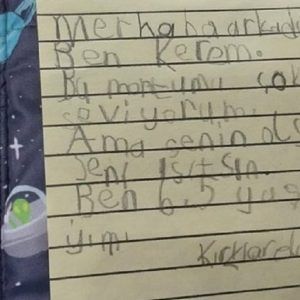 Merhaba arkada
Ben Kerem.
Bu montumu çok
seviyorum.
Ama senin ols
Seni ısıtsın.
Ben 6.5 yaş
yım.